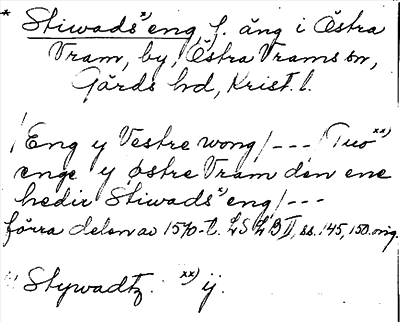 * Stiwads x) eng, f. äng i Östra
Vram, by, Östra Vrams sn,
Gärds hd, Krist. l.
/Eng y Vestre wong/ --- /Tuo xx)
enge y østre Vram den ene
hedir Stiwads x) eng/ ---
förra delen av 1570-t. LSLB II, ss. 145, 150. orig.
x) Stywadtz. xx) ij.